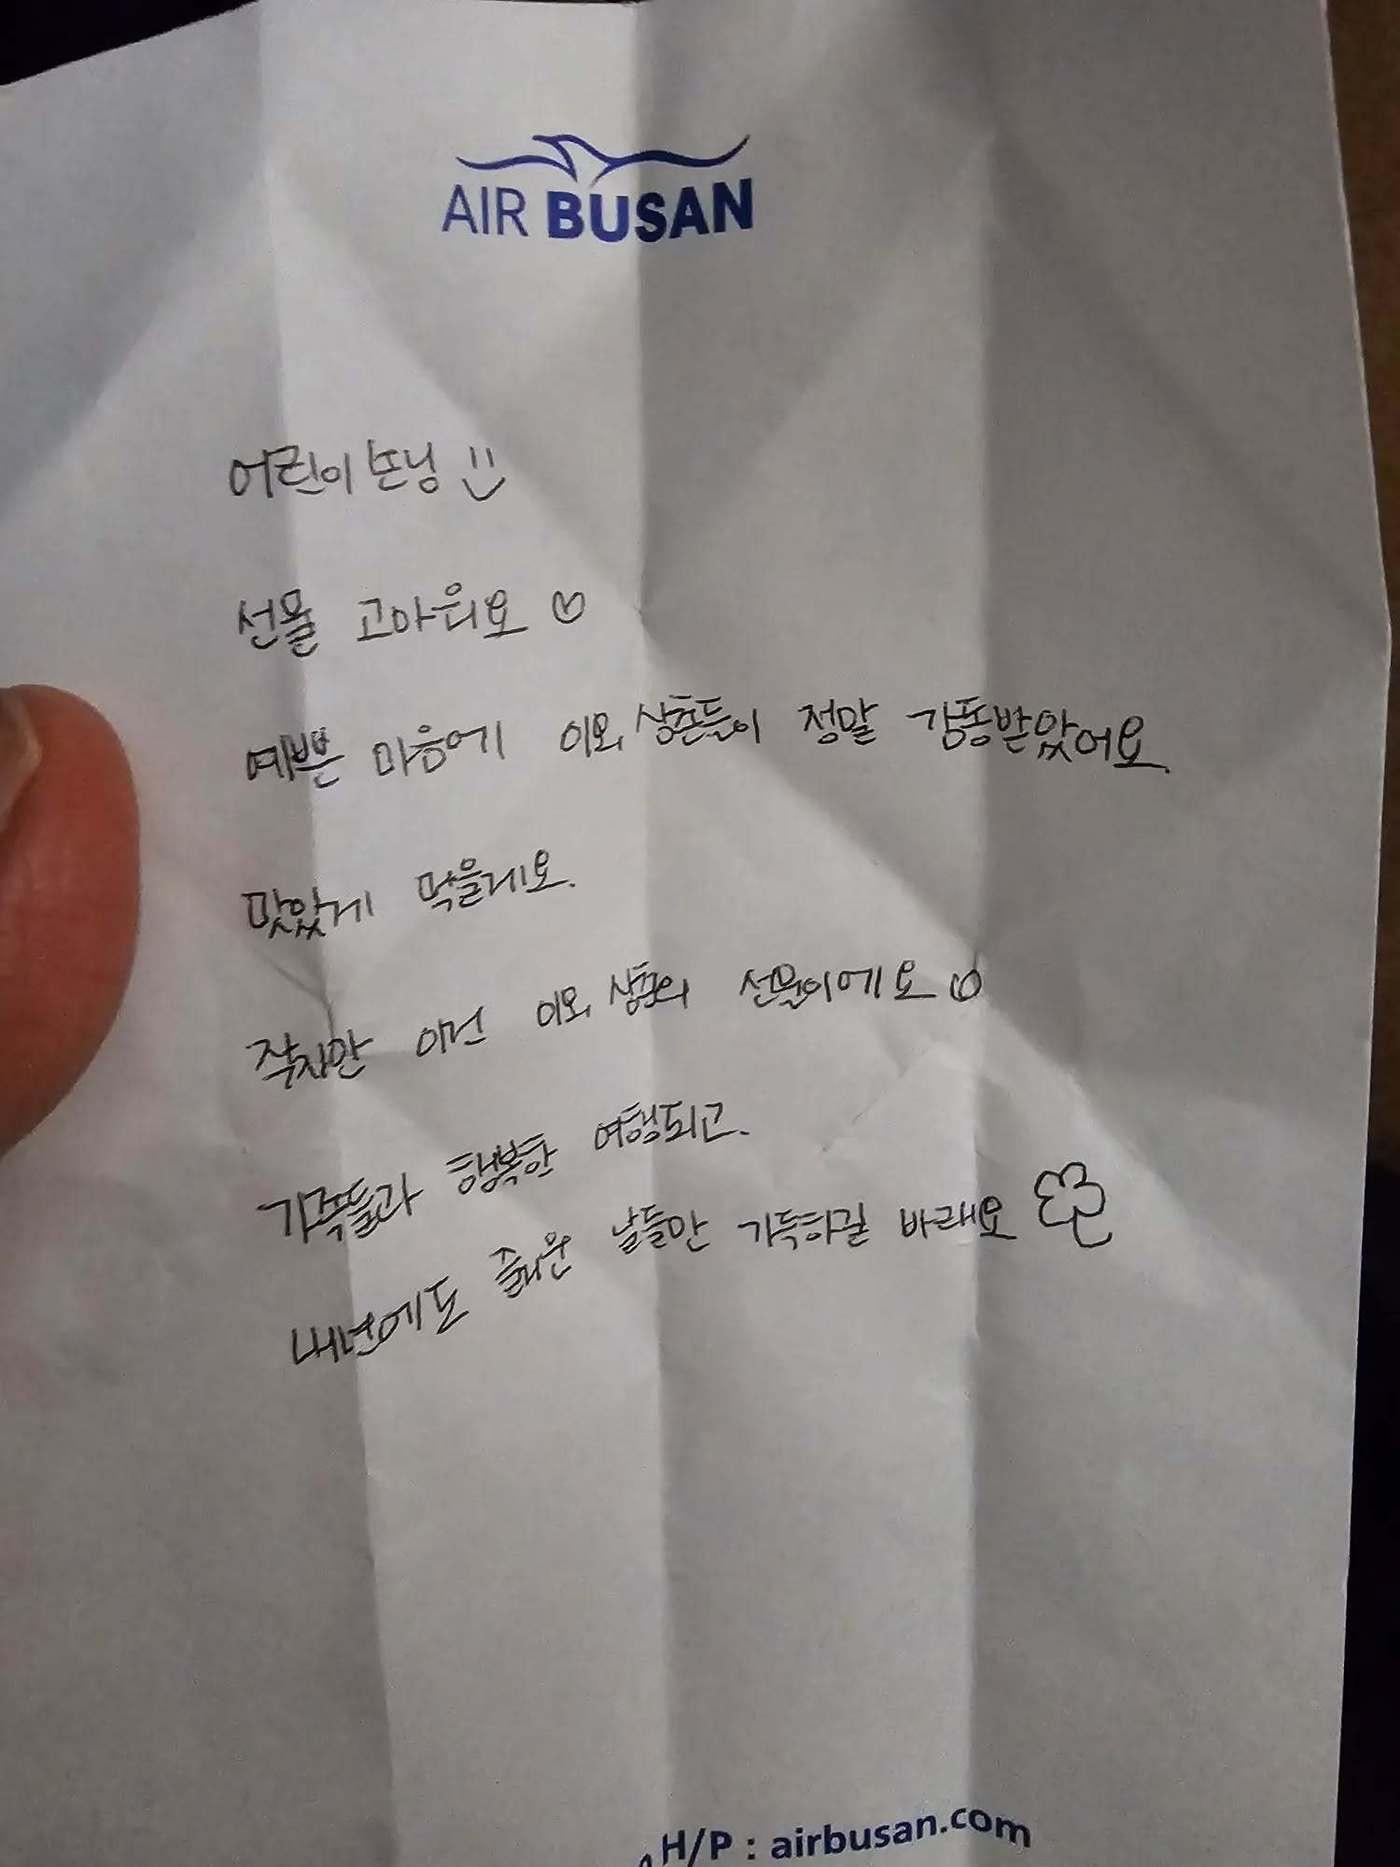 AIR BUSAN
어린이 손님
선물 고마워요 ♡
예쁜 마음에 이모, 삼촌들이 정말 감동받았어요.
맛있게 먹을게요.
작지만 이건 이모, 삼촌의 선물이에요
가족들과 행복한 여행되고.
내년에도 즐거운 날들만 가득하길 바래요
H/P : airbusan.com